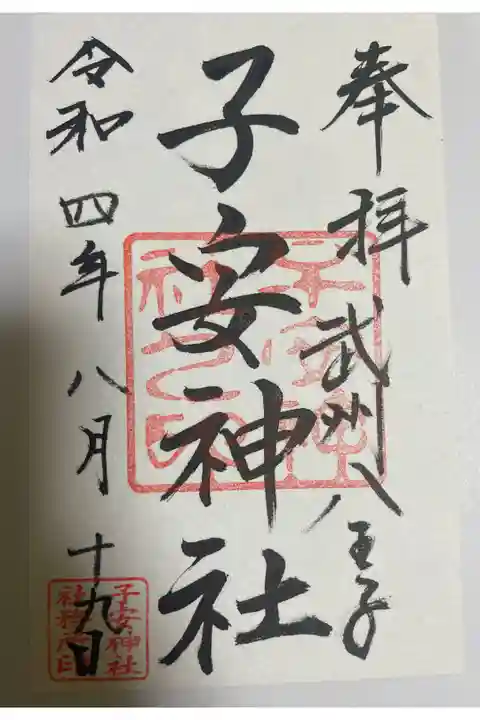 奉拝
武州八王子
子安神社
令和四年八月十九日
子安神社之印
子安神社
社務所印